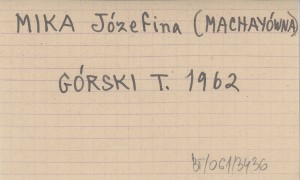 MIKA Józefina (MACHAYÓWNA)
GÓRSKI T. 1962
BF/061/3436